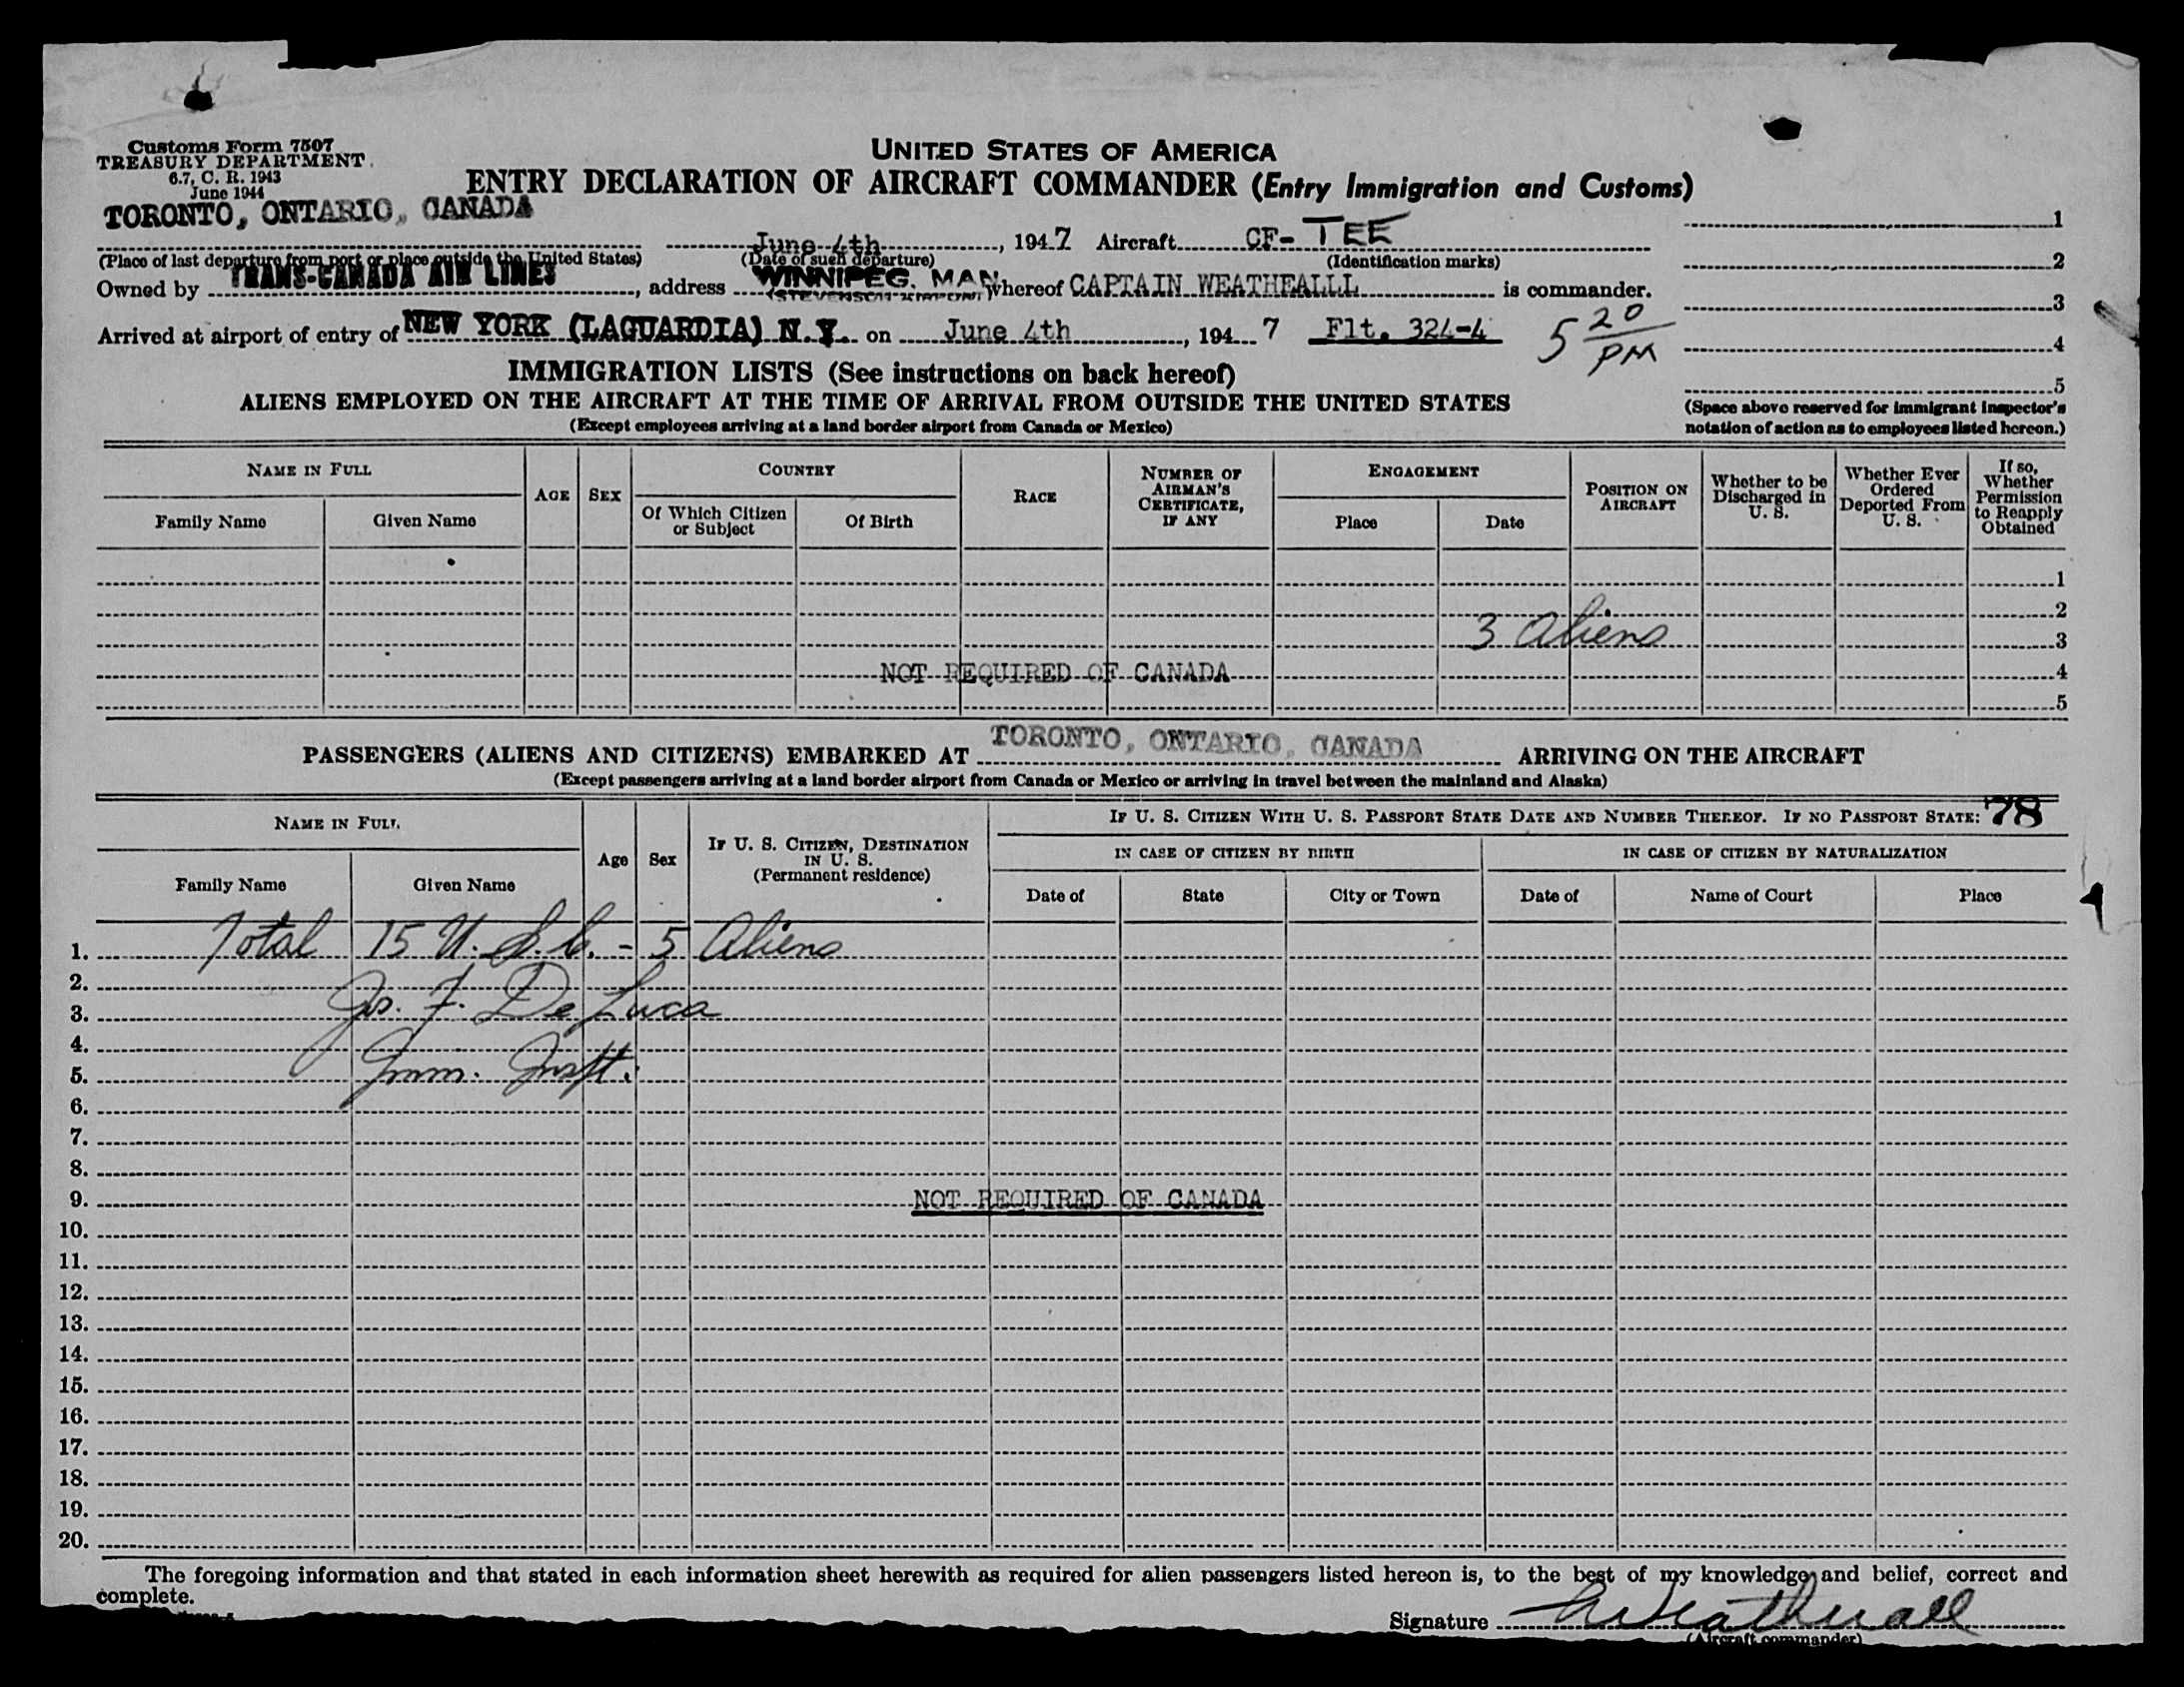 Customs Form 7507
TREASURY DEPARTMENT
6.7, C. R. 1943
June 1944
UNITED STATES OF AMERICA
ENTRY DECLARATION OF AIRCRAFT COMMANDER (Entry Immigration and Customs)
TORONTO, ONTARIO, CANADA
June 4th, 1947 Aircraft CF-TEE
(Place of last departure from port or place outside the United States) (Date of such departure) (Identification marks)
Owned by TRANS-CANADA AIR LINES, address WINNIPEG. MAN. whereof CAPTAIN WEATHEALLL is commander.
(STEVENSON AIRPORT)
Arrived at airport of entry of NEW YORK (LAGUARDIA) N.Y. on June 4th, 1947 Flt. 324-4 5 20 PM
1
2
3
4
5
(Space above reserved for immigrant inspector's
notation of action as to employees listed hereon.)
IMMIGRATION LISTS (See instructions on back hereof)
ALIENS EMPLOYED ON THE AIRCRAFT AT THE TIME OF ARRIVAL FROM OUTSIDE THE UNITED STATES
(Except employees arriving at a land border airport from Canada or Mexico)
NAME IN FULL
Family Name
Given Name
AGE
SEX
COUNTRY
Of Which Citizen
or Subject
Of Birth
RACE
NUMBER OF
AIRMAN'S
CERTIFICATE,
IF ANY
ENGAGEMENT
Place
Date
POSITION ON
AIRCRAFT
Whether to be
Discharged in
U. S.
Whether Ever
Ordered
Deported From
U. S.
If so,
Whether
Permission
to Reapply
Obtained
1
2
3 Aliens
3
NOT REQUIRED OF CANADA
4
5
PASSENGERS (ALIENS AND CITIZENS) EMBARKED AT TORONTO, ONTARIO, CANADA ARRIVING ON THE AIRCRAFT
(Except passengers arriving at a land border airport from Canada or Mexico or arriving in travel between the mainland and Alaska)
NAME IN FULL
Family Name
Given Name
Age
Sex
IF U. S. CITIZEN, DESTINATION
IN U. S.
(Permanent residence)
IF U. S. CITIZEN WITH U. S. PASSPORT STATE DATE AND NUMBER THEREOF. IF NO PASSPORT STATE: 78
IN CASE OF CITIZEN BY BIRTH
Date of
State
City or Town
IN CASE OF CITIZEN BY NATURALIZATION
Date of
Name of Court
Place
1. Total 15 U.S.C. - 5 Aliens
2.
3. Jos. F. De Luca
4.
5. Imm. Inspt.
6.
7.
8.
9. NOT REQUIRED OF CANADA
10.
11.
12.
13.
14.
15.
16.
17.
18.
19.
20.
The foregoing information and that stated in each information sheet herewith as required for alien passengers listed hereon is, to the best of my knowledge and belief, correct and
complete.
Signature Weatherall
(Aircraft commander)